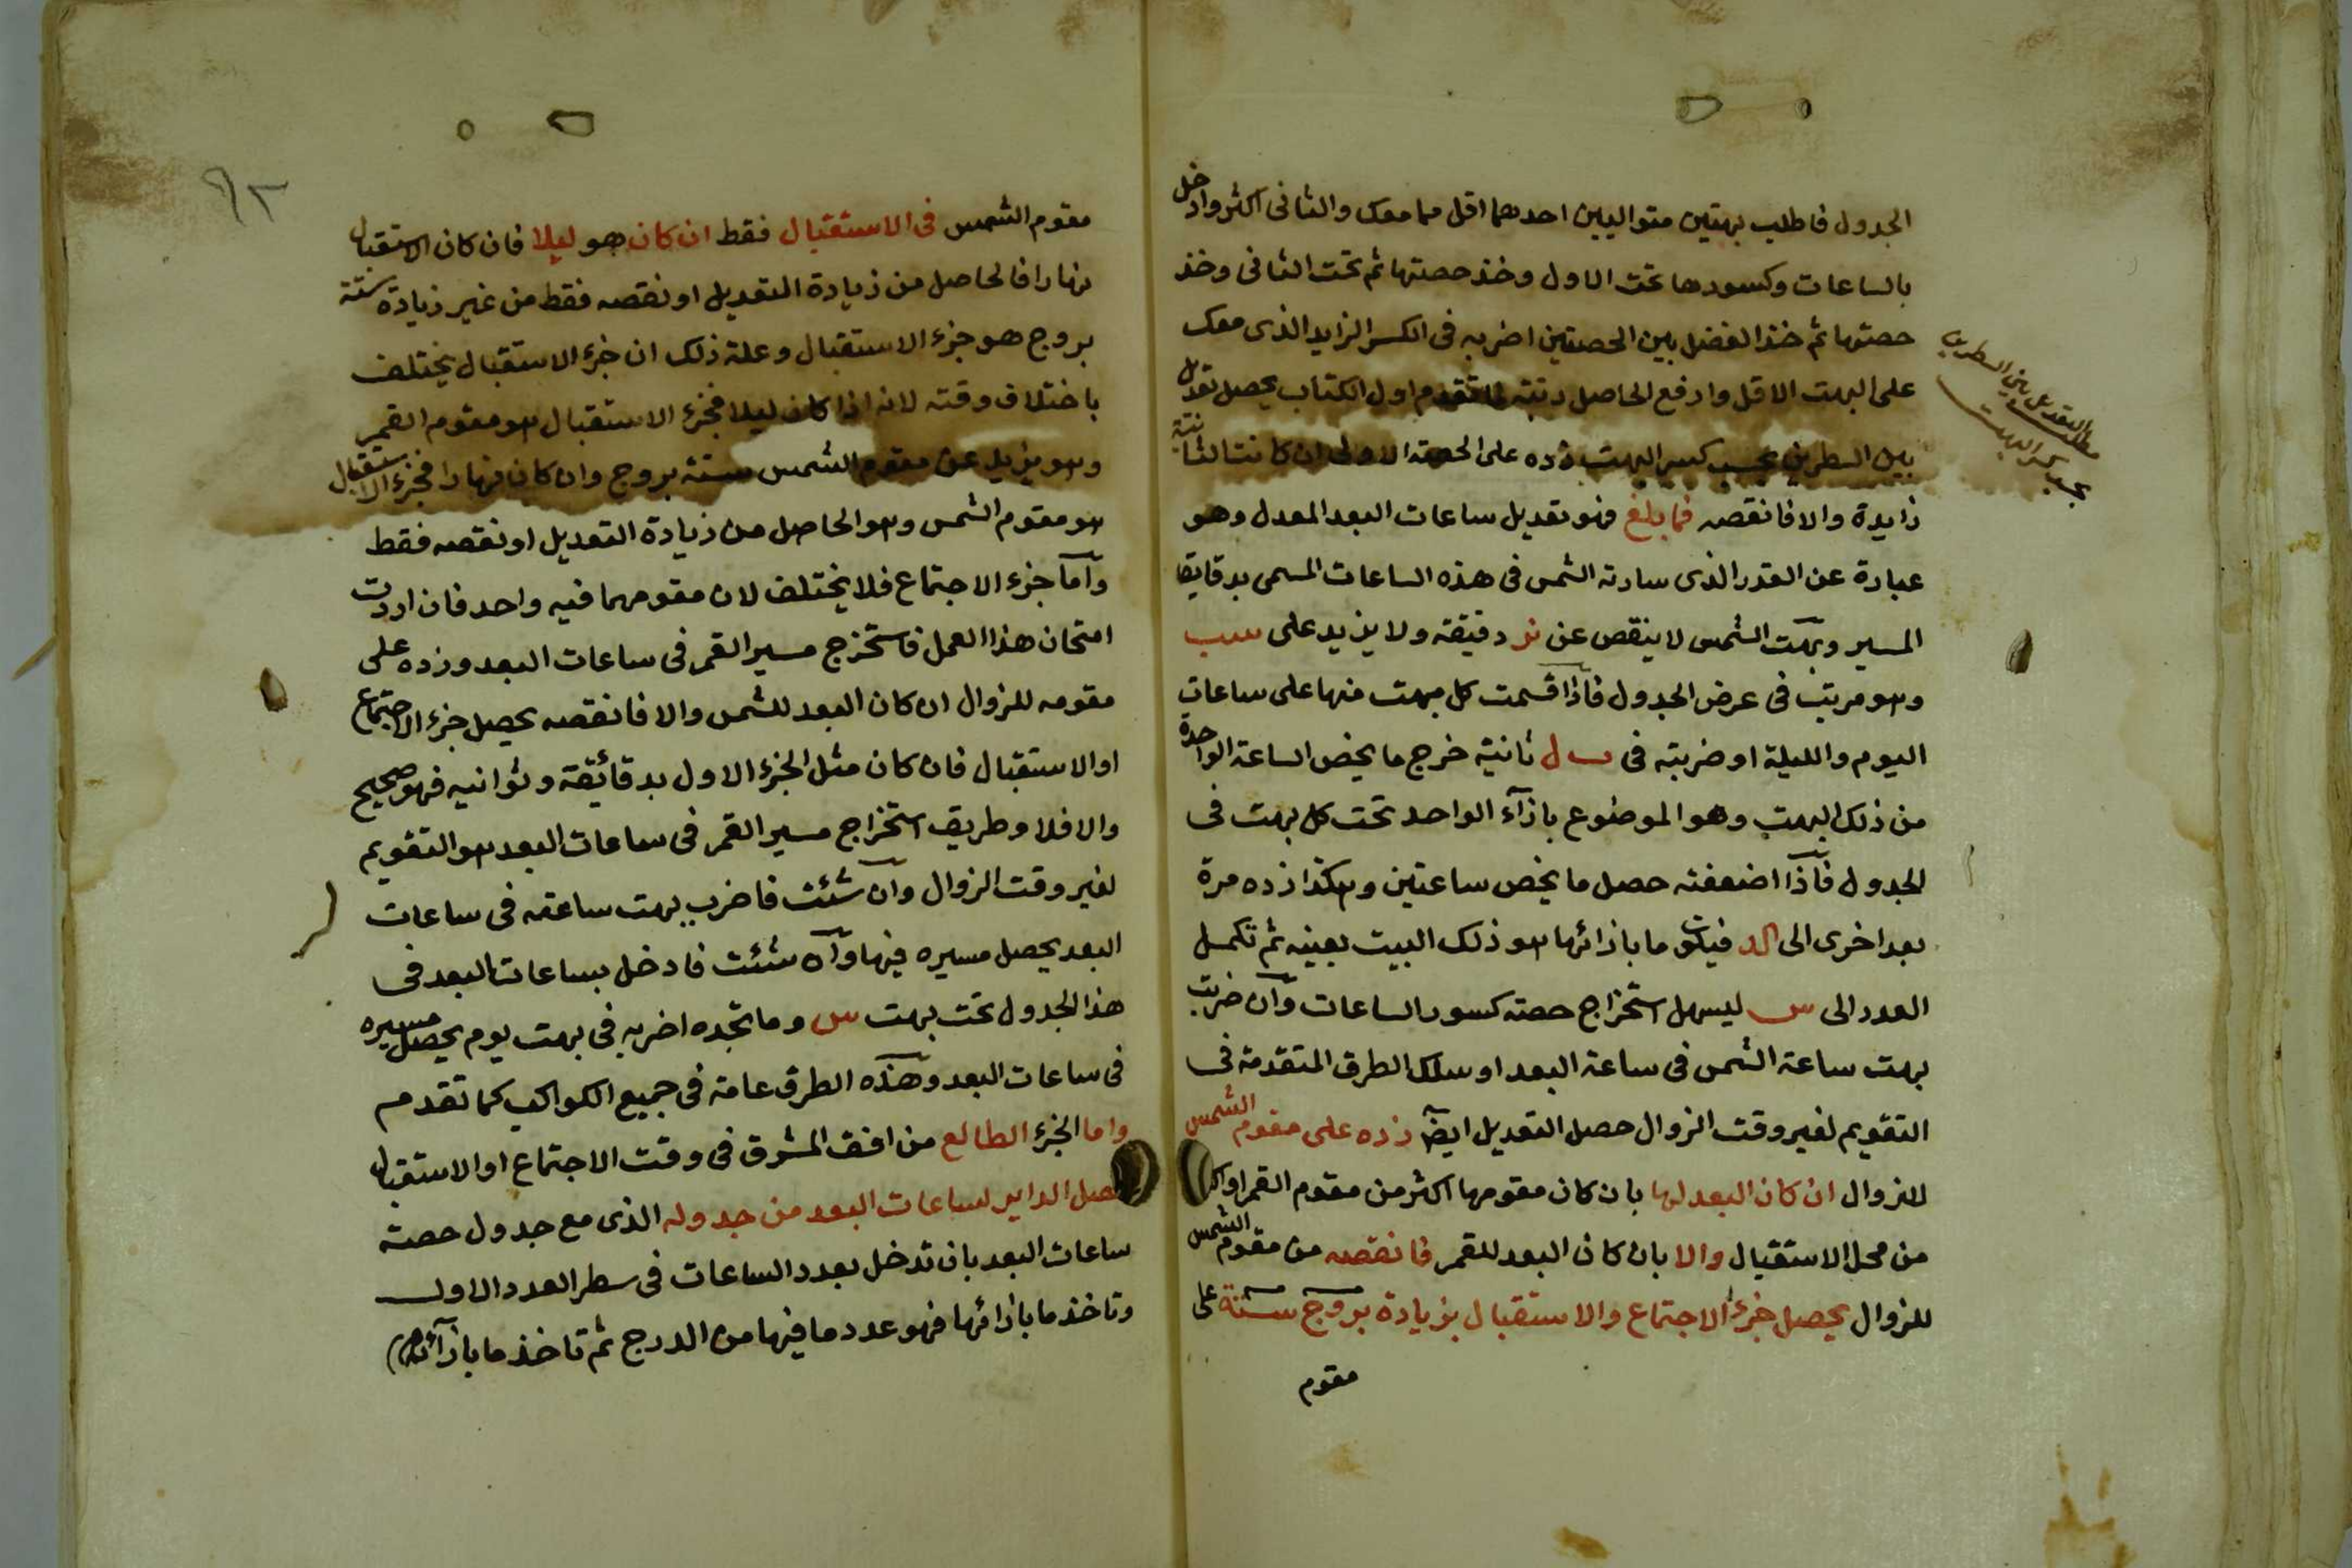 الجدول فاطلب بهتين متواليين احدهما اقل مما معك والثانى اكثر وادخل
بالساعات وكسورها تحت الاول وخذ حصتها ثم تحت الثانى وخذ
حصتها ثم خذ الفضل بين الحصتين اضربه فى الكسر الزايد الذى معك
على البهت الاقل وارفع الحاصل رتبة لما تقدم اول الكتاب يحصل تعديل
بين السطرين بحسب كسر البهت زده على الحصة الاولى ان كانت الثانية
زايدة والا فانقصه فما بلغ فهو تعديل ساعات البعد المعدل وهو
عبارة عن القدر الذى سارته الشمس فى هذه الساعات المسمى بدقايق
المسير وبهت الشمس لا ينقص عن نز دقيقة ولا يزيد على سب
وهو مرتب فى عرض الجدول فاذا قسمت كل بهت منها على ساعات
اليوم والليلة او ضربته فى ب ل ثانية خرج ما يخص الساعة الواحدة
من ذلك البهت وهو الموضوع بازآء الواحد تحت كل بهت فى
الجدول فاذا اضعفته حصل ما يخص ساعتين وهكذا زده مرة
بعد اخرى الى كد فيكون ما بازائها هو ذلك البيت بعينه ثم تكمل
العدد الى س ليسهل استخراج حصة كسور الساعات وان ضربت
بهت ساعة الشمس فى ساعة البعد او سلك الطرق المتقدمة فى
التقويم لغير وقت الزوال حصل التعديل ايضا زده على مقوم الشمس
للزوال ان كان البعد لها بان كان مقومها اكثر من مقوم القمر او
من محل الاستقبال والا بان كان البعد للقمر فانقصه من مقوم الشمس
للزوال يحصل جزء الاجتماع والاستقبال بزيادة بروج ستة على
مقوم
التعديل بين السطرين
بحسب كسر البهت
٦٣
مقوم الشمس فى الاستقبال فقط ان كان هو ليلا فان كان الاستقبال
نهارا فالحاصل من زيادة التعديل او نقصه فقط من غير زيادة ستة
بروج هو جزء الاستقبال وعلة ذلك ان جزء الاستقبال يختلف
باختلاف وقته لانه اذا كان ليلا فجزء الاستقبال هو مقوم القمر
وهو يزيد عن مقوم الشمس ستة بروج وان كان نهارا فجزء الاستقبال
هو مقوم الشمس وهو الحاصل من زيادة التعديل او نقصه فقط
واما جزء الاجتماع فلا يختلف لان مقومهما فيه واحد فان اردت
امتحان هذا العمل فاستخرج مسير القمر فى ساعات البعد وزده على
مقومه للزوال ان كان البعد للشمس والا فانقصه يحصل جزء الاجتماع
او الاستقبال فان كان مثل الجزء الاول بدقائيقة وثوانيه فهو صحيح
والا فلا وطريق استخراج مسير القمر فى ساعات البعد هو التقويم
لغير وقت الزوال وان شئت فاضرب بهت ساعته فى ساعات
البعد يحصل مسيره فيها وان شئت فادخل بساعات البعد فى
هذا الجدول تحت بهت س وما تجده اضربه فى بهت يوم يحصل مسيره
فى ساعات البعد وهذه الطرق عامة فى جميع الكواكب كما تقدم
واما الجزء الطالع من افق المشرق فى وقت الاجتماع او الاستقبال
الداير لساعات البعد من جدوله الذى مع جدول حصة
ساعات البعد بان تدخل بعدد الساعات فى سطر العدد الاول
وتاخذ ما بازائها فهو عدد ما فيها من الدرج ثم تاخذ ما بازآئها